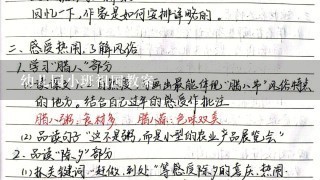 回忆一下,作家是如何安排详略的。
二、感受热闹,了解风俗
1. 学习“腊八”部分
画出最能体现“腊八节”风俗特点
的地方。结合自己过年的感受作批注
腊八粥:食材多 腊八蒜:色味双美
(2) 品读句子“这不是粥,而是小型的农业产品展览会”
2. 品读“除夕”部分
(1) 抓关键词“赶做、到处”等感受除夕的喜庆、热闹